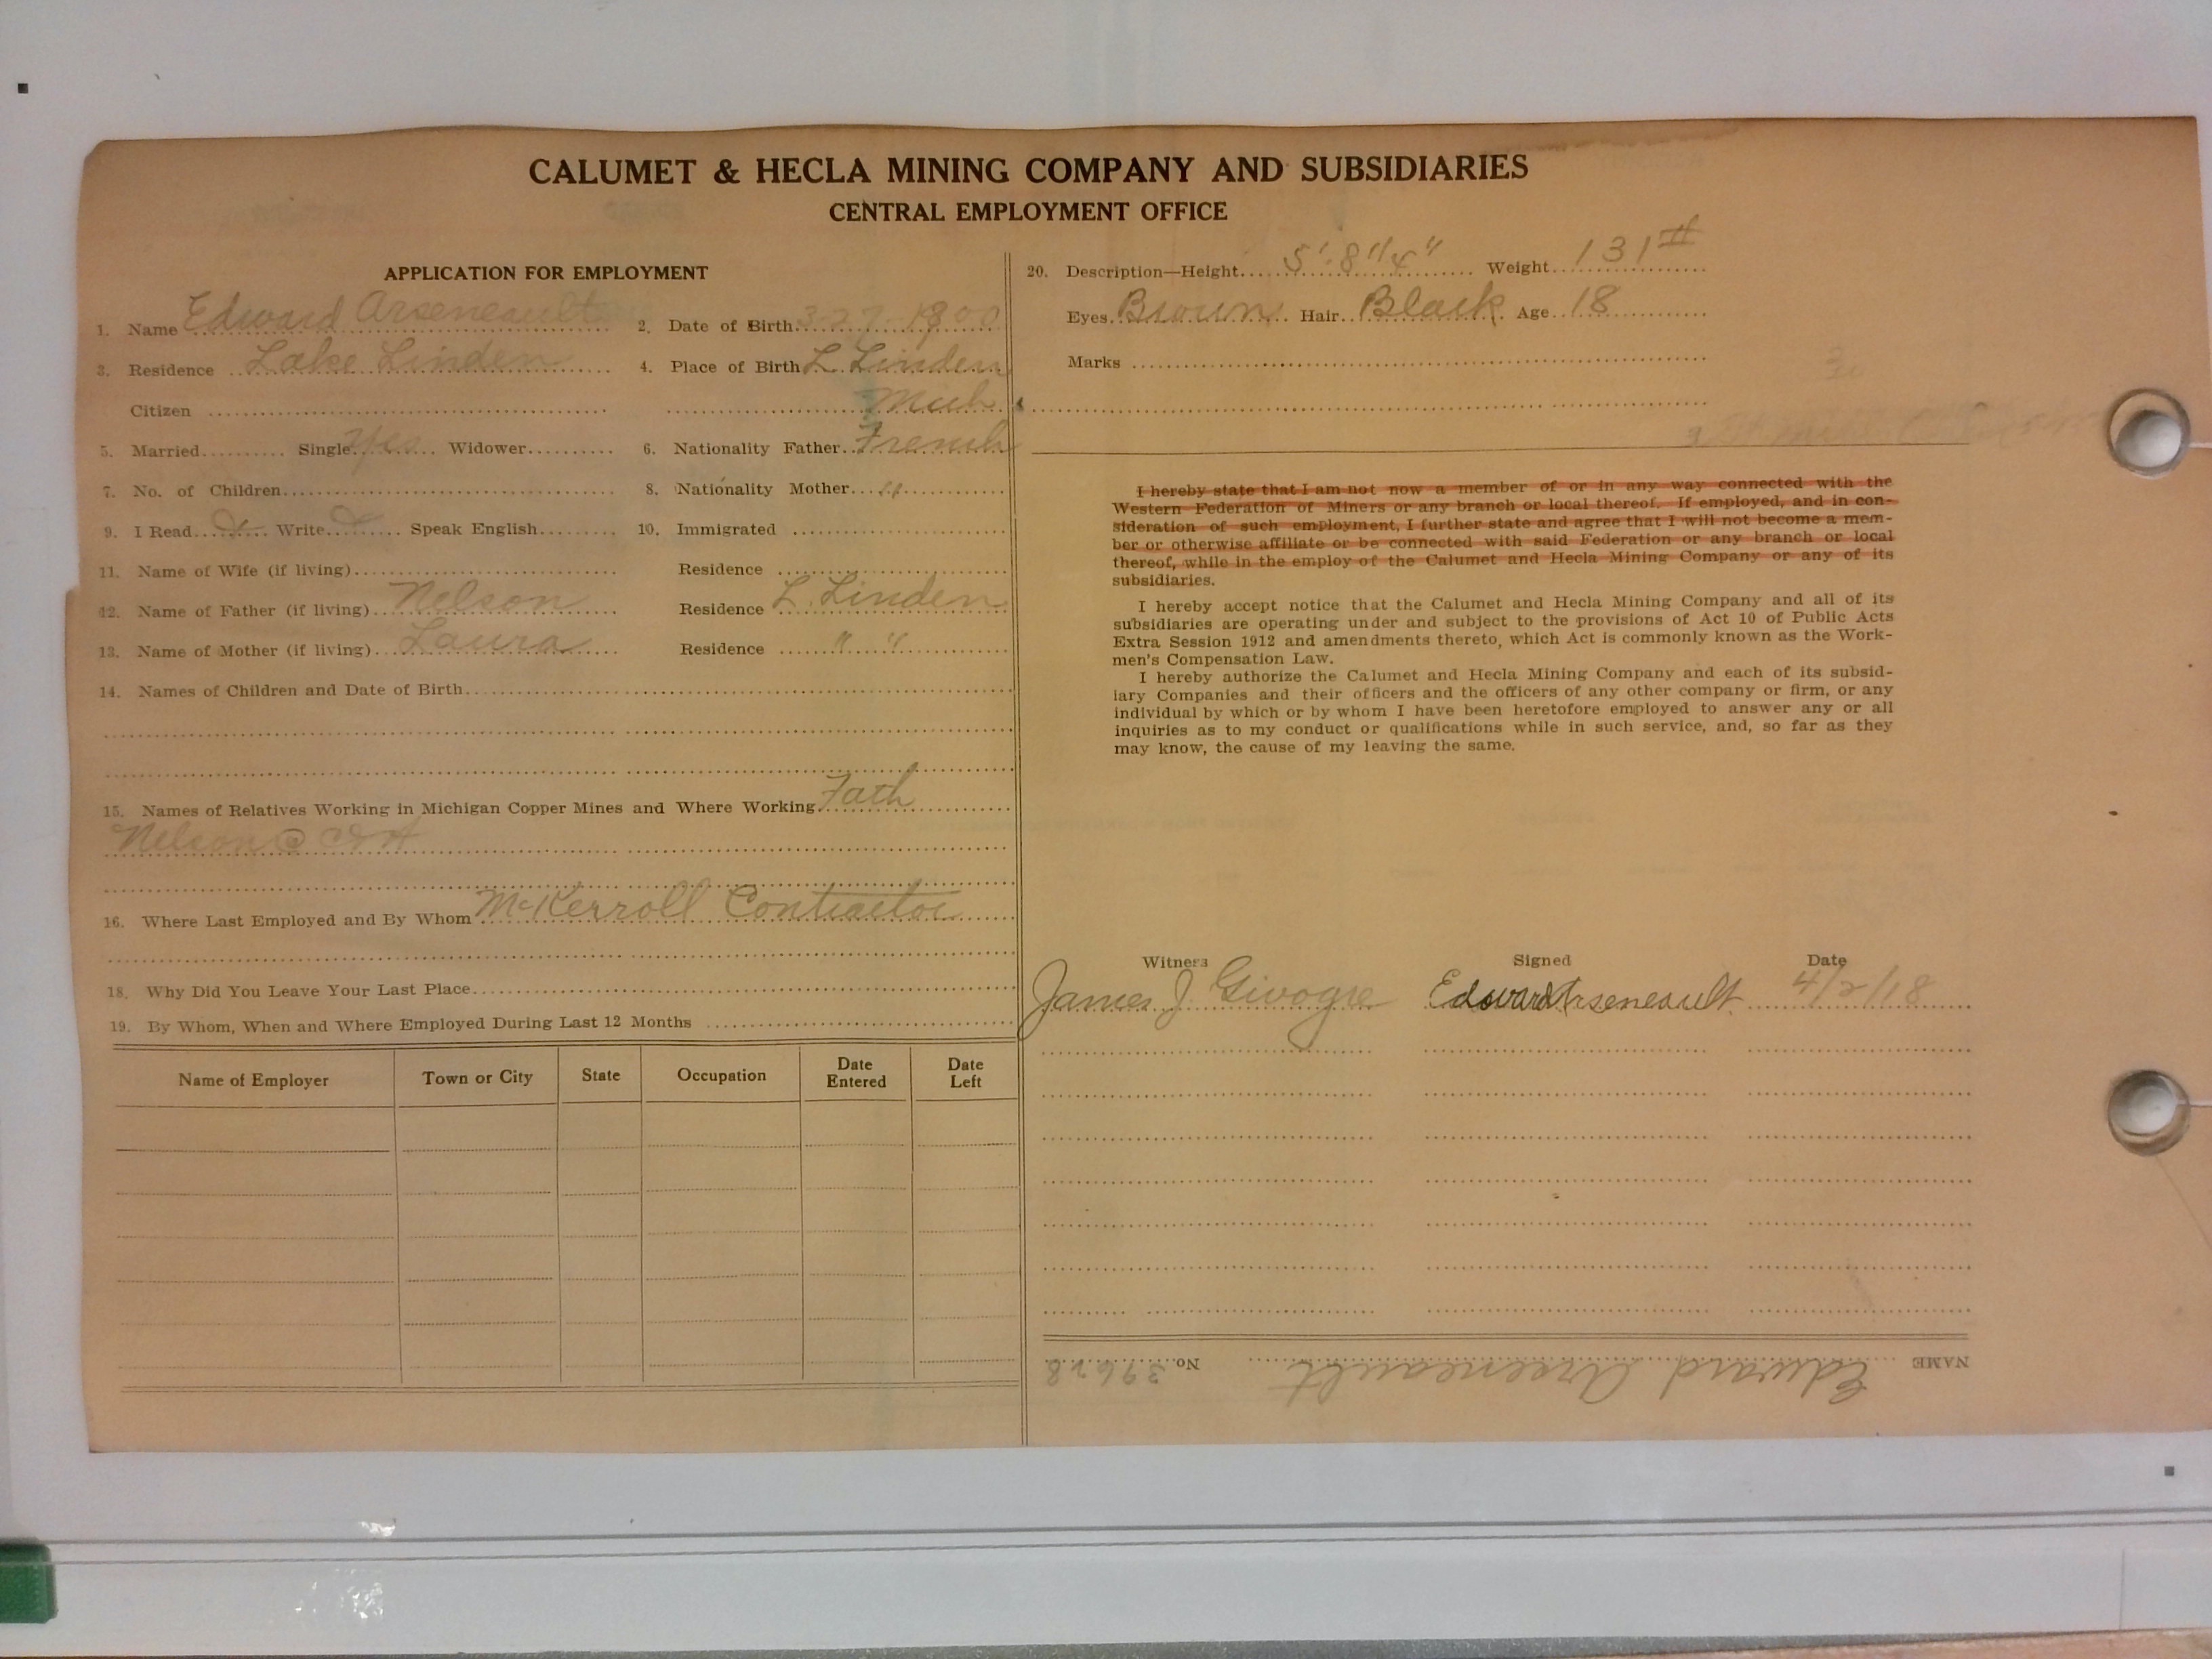 CALUMET & HECLA MINING COMPANY AND SUBSIDIARIES
CENTRAL EMPLOYMENT OFFICE
APPLICATION FOR EMPLOYMENT
1. Name Edward Arseneault
2. Date of Birth 3-27-1900
3. Residence Lake Linden
4. Place of Birth L Linden
Citizen
Mich
5. Married Single Yes Widower
6. Nationality Father French
7. No. of Children
8. Nationality Mother
9. I Read Write Speak English
10. Immigrated
11. Name of Wife (if living)
Residence
12. Name of Father (if living) Nelson
Residence L. Linden
13. Name of Mother (if living) Laura
Residence " "
14. Names of Children and Date of Birth
15. Names of Relatives Working in Michigan Copper Mines and Where Working Fath
Nelson @
16. Where Last Employed and By Whom McKerroll Contractor
18. Why Did You Leave Your Last Place
19. By Whom, When and Where Employed During Last 12 Months
Name of Employer Town or City State Occupation Date Entered Date Left
20. Description—Height 5'-8 1/4" Weight 131#
Eyes Brown Hair Black Age 18
Marks
I hereby state that I am not now a member of or in any way connected with the
Western Federation of Miners or any branch or local thereof. If employed, and in con-
sideration of such employment, I further state and agree that I will not become a mem-
ber or otherwise affiliate or be connected with said Federation or any branch or local
thereof, while in the employ of the Calumet and Hecla Mining Company or any of its
subsidiaries.
I hereby accept notice that the Calumet and Hecla Mining Company and all of its
subsidiaries are operating under and subject to the provisions of Act 10 of Public Acts
Extra Session 1912 and amendments thereto, which Act is commonly known as the Work-
men's Compensation Law.
I hereby authorize the Calumet and Hecla Mining Company and each of its subsid-
iary Companies and their officers and the officers of any other company or firm, or any
individual by which or by whom I have been heretofore employed to answer any or all
inquiries as to my conduct or qualifications while in such service, and, so far as they
may know, the cause of my leaving the same.
Witness Signed Date
James J. Givogre Edward Arseneault. 4/2/18
NAME Edward Arseneault No. 39628